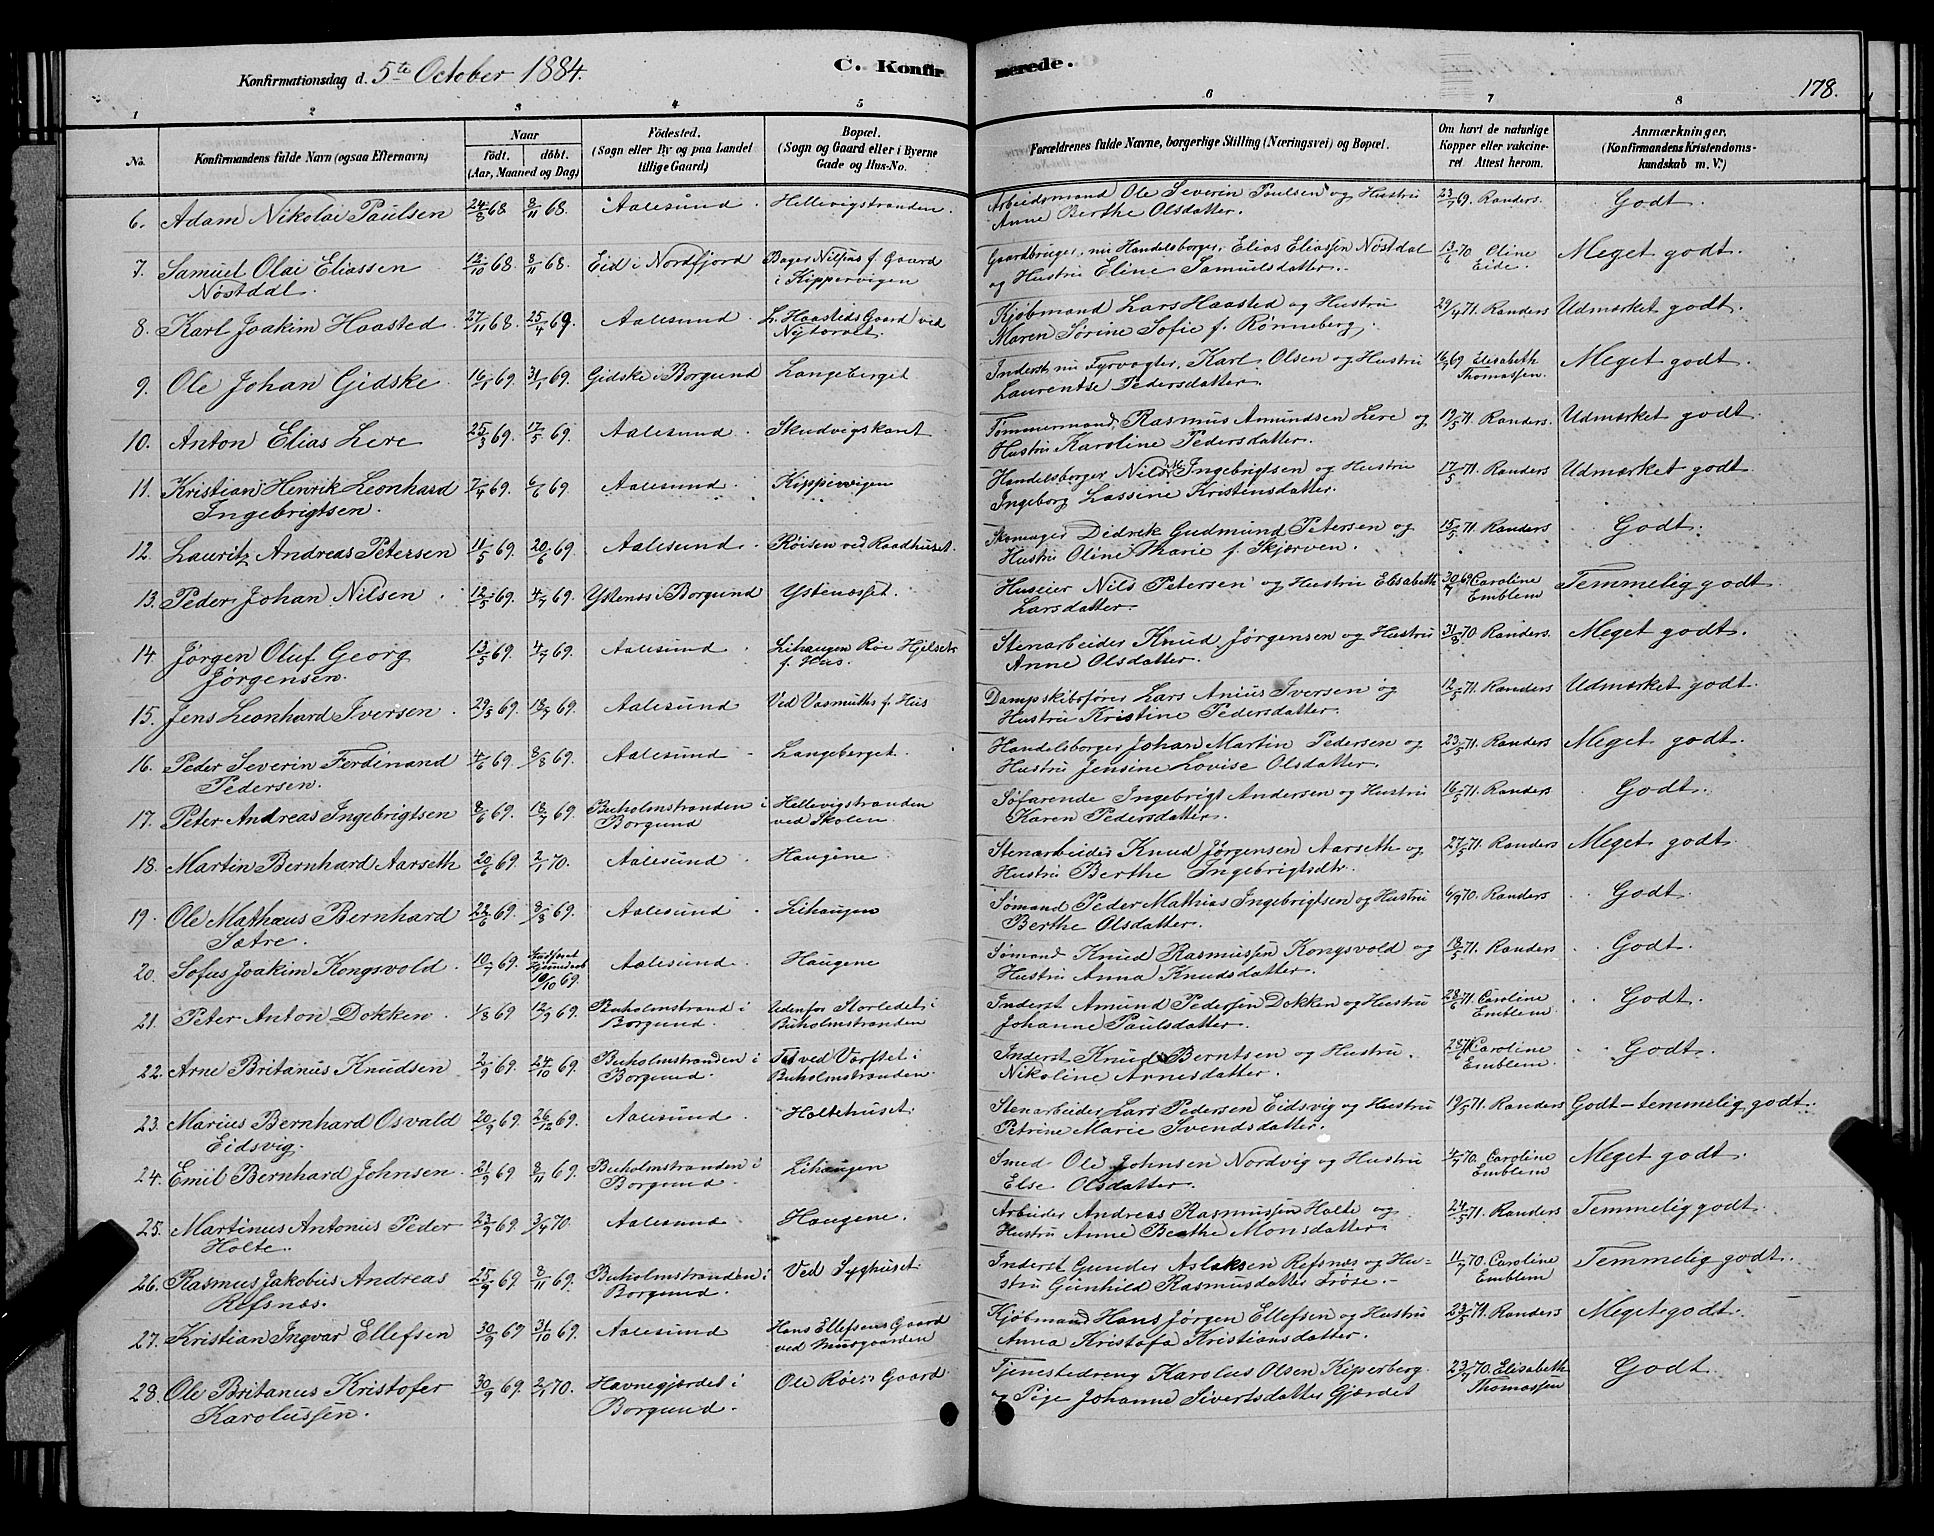 Konfirmationsdag d. 5te October 1884.
C. Konfir
merede.
178.
1 2 3 4 5 6 7 8
No.
Konfirmandens fulde Navn (ogsaa Efternavn)
Naar
født. døbt.
(Aar, Maaned og Dag)
Fødested.
(Sogn eller By og paa Landet
tillige Gaard)
Bopæl.
(Sogn og Gaard eller i Byerne
Gade og Hus-No.
Forældrenes fulde Navne, borgerlige Stilling (Næringsvei) og Bopæl.
Om havt de naturlige
Kopper eller vakcine-
ret. Attest herom.
Anmærkninger,
(Konfirmandens Kristendoms-
kundskab m. V.)
6. Adam Nikolai Paulsen 24/8 68 8/11 68. Aalesund. Hellevigstranden. Arbeidsmand Ole Severin Paulsen og Hustru 23/7 69. Randers. Godt.
Anne Berthe Olsdatter.
7. Samuel Olai Eliassen 12/10 68. 8/11 68. Eid i Nordfjord Bager Nilsens f. Gaard Gaardbruger, nu Handelsborger, Elias Eliassen Nøstdal 13/6 70 Oline Meget godt.
Nøstdal i Kippervigen og Hustru Eline Samuelsdatter. Eide.
8. Karl Joakim Haasted 27/11 68. 25/4 69 Aalesund L. Haasteds Gaard ved Kjøbmand Lars Haasted og Hustru 29/4 71. Randers Udmærket godt.
Nytorvet Maren Sørine Sofie f. Rønneberg.
9. Ole Johan Gidske 16/1 69. 31/1 69. Gidske i Borgund Langeberget Inderst nu Fyrvogter, Karl Olsen og Hustru 16/7 69 Elisabeth Meget godt.
Laurentse Pedersdatter. Thomassen.
10. Anton Elias Lere 25/3 69. 17/5 69. Aalesund. Skudvigskant Tømmermand Rasmus Amundsen Lere og 12/5 71. Randers. Udmærket godt.
Hustru Karoline Pedersdatter.
11. Kristian Henrik Leonhard 7/4 69. 6/6 69. Aalesund. Kippervigen Handelsborger Nils M. Ingebrigtsen og Hustru 17/5 71. Randers Udmærket godt.
Ingebrigtsen. Ingeborg Lassine Kristensdatter.
12. Lauritz Andreas Petersen 11/5 69. 20/6 69. Aalesund. Røisen ved Raadhuset. Skomager Didrik Gudmund Petersen og 15/5 71. Randers Godt.
Hustru Oline Marie f. Skjærven.
13. Peder Johan Nilsen 12/5 69. 4/7 69. Ystenæs i Borgund Ystenæsset. Huseier Nils Petersen og Hustru Elisabeth 30/7 69 Caroline Temmelig godt
Larsdatter. Emblem
14. Jørgen Oluf Georg 13/5 69. 4/7 69. Aalesund Lihaugen Roe Hjelsets Stenarbeider Knud Jørgensen og Hustru 31/8 70 Randers. Meget godt.
Jørgensen. f. Hus. Anne Olsdatter.
15. Jens Leonhard Iversen 29/5 69. 18/7 69. Aalesund Ved Vasmuths f. Hus Dampskibsfører Lars Anius Iversen og 12/5 71. Randers Udmærket godt.
Hustru Kristine Pedersdatter.
16. Peder Severin Ferdinand 4/6 69. 8/8 69. Aalesund Langeberget. Handelsborger Johan Martin Pedersen og 23/5 71. Randers Meget godt.
Pedersen. Hustru Jensine Lovise Olsdatter.
17. Peter Andreas Ingebrigtsen 8/6 69. 18/7 69. Buholmstranden i Hellevigstranden Søfarende Ingebrigt Andersen og Hustru 16/5 71. Randers Godt.
Borgund ved Skolen. Karen Pedersdatter.
18. Martin Bernhard Aarseth 20/6 69. 2/1 70. Aalesund Haugene. Stenarbeider Knud Jørgensen Aarseth og 27/5 71. Randers Meget godt
Hustru Berthe Ingebrigtsdtr.
19. Ole Mathæus Bernhard 22/6 69. 8/8 69. Aalesund. Lihaugen Sømand Peder Mathias Ingebrigtsen og Hustru 6/9 70. Randers Godt.
Sætre. Berthe Olsdatter.
20. Sofus Joakim Kongsvold 10/7 69. Stadfæstet Hjemmedaab 10/10 69. Aalesund. Haugene Sømand Knud Rasmussen Kongsvold og 18/5 71. Randers Godt.
Hustru Anna Knudsdatter.
21. Peter Anton Dokken 1/8 69 12/9 69. Buholmstrand i Udenfor Storledet i Inderst Amund Pedersen Dokken og Hustru 28/6 71. Caroline Godt.
Borgund. Buholmstranden Johanne Paulsdatter. Emblem.
22. Arne Britanus Knudsen 2/9 69. 24/10 69. Buholmstranden i Tæt ved Værftet i Inderst Knud Berntsen og Hustru 28/6 71. Caroline Godt.
Borgund. Buholmstranden. Nikoline Arnesdatter. Emblem.
23. Marius Bernhard Osvald 20/9 69. 26/12 69. Aalesund. Holtehuset. Stenarbeider Lars Pedersen Eidsvig og Hustru 19/5 71. Randers Godt - temmelig godt.
Eidsvig. Petrine Marie Svendsdatter.
24. Emil Bernhard Johnsen 21/9 69. 8/11 69. Buholmstranden i Lihaugen Smed Ole Johnsen Nordvig og Hustru 4/7 70. Caroline Meget godt.
Borgund. Else Olsdatter. Emblem
25. Martinus Antonius Peder 23/9 69. 3/4 70. Aalesund Haugene. Arbeider Andreas Rasmussen Holte og 24/5 71. Randers Temmelig godt.
Holte. Hustru Anne Berthe Monsdatter.
26. Rasmus Jakobus Andreas 25/9 69 8/11 69. Buholmstranden i Ved Syghuset Inderst Gunder Aslaksen Refsnæs og Hu- 11/7 70. Caroline Temmelig godt.
Refsnæs. Borgund. stru Gunhild Rasmusdatter Frøse. Emblem
27. Kristian Ingvar Ellefsen 30/9 69 31/10 69. Aalesund Hans Ellefsens Gaard Kjøbmand Hans Jørgen Ellefsen og Hustru 23/5 71. Randers Meget godt.
ved Murgaarden Anna Kristofa Kristiansdatter.
28. Ole Britanus Kristofer 30/9 69. 2/1 70. Havnegjærdet i Ole Røes Gaard Tjenestedreng Karolus Olsen Kiperberg 23/7 70. Elisabeth Godt
Karolussen. Borgund. og Pige Johanne Sivertsdatter Gjærdet Thomassen